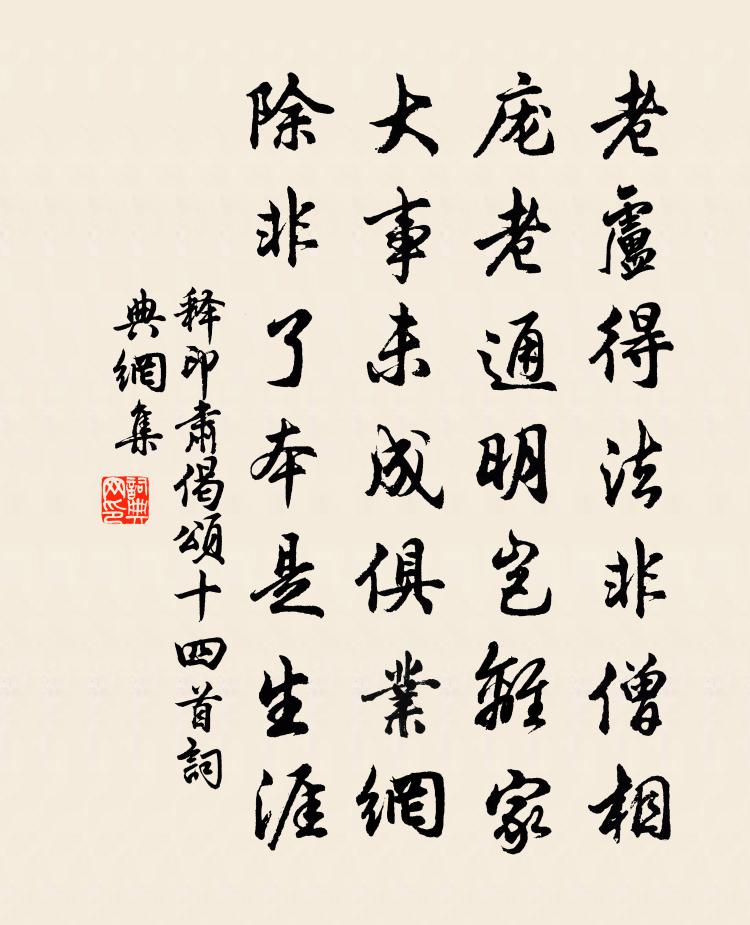 老盧得法非僧相
庞老通明岂離家
大事未成俱業網
除非了本是生涯
释印肅偈頌十四首詞
典網集
詞典
网印